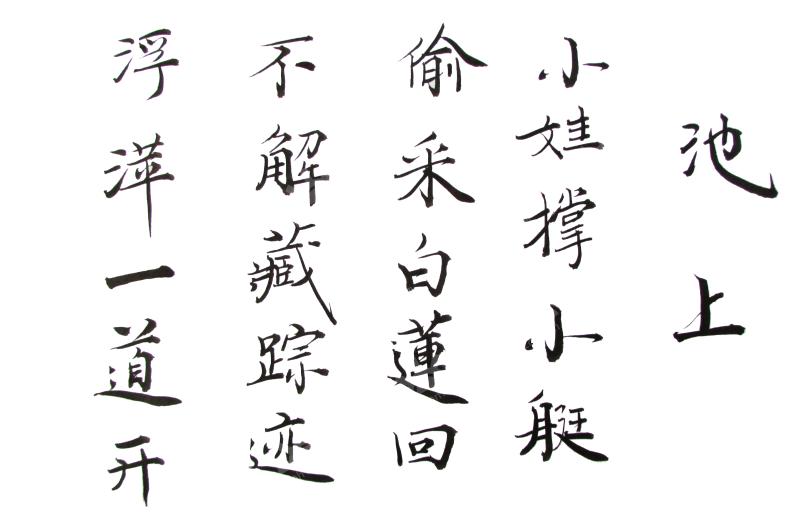 池上
小娃撑小艇
偷采白蓮回
不解藏踪迹
浮萍一道开